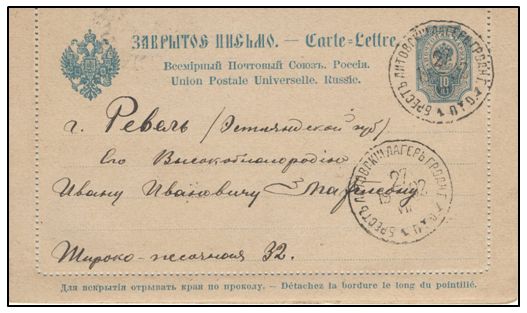 ЗАКРЫТОЕ ПИСЬМО. — Carte=Lettre.
Всемірный Почтовый Союзъ. Россія.
Union Postale Universelle. Russie.
г. Ревель (Эстляндской губ)
Его Высокоблагородію
Ивану Ивановичу
Широко-песочная 32.
Для вскрытія отрывать края по проколу. — Détachez la bordure le long du pointillé.
БРЕСТЪ ЛИТОВСКІЙ ЛАГЕРЬ ГРОДН. Г.
27
БРЕСТЪ ЛИТОВСКІЙ ЛАГЕРЬ ГРОДН. Г.
27